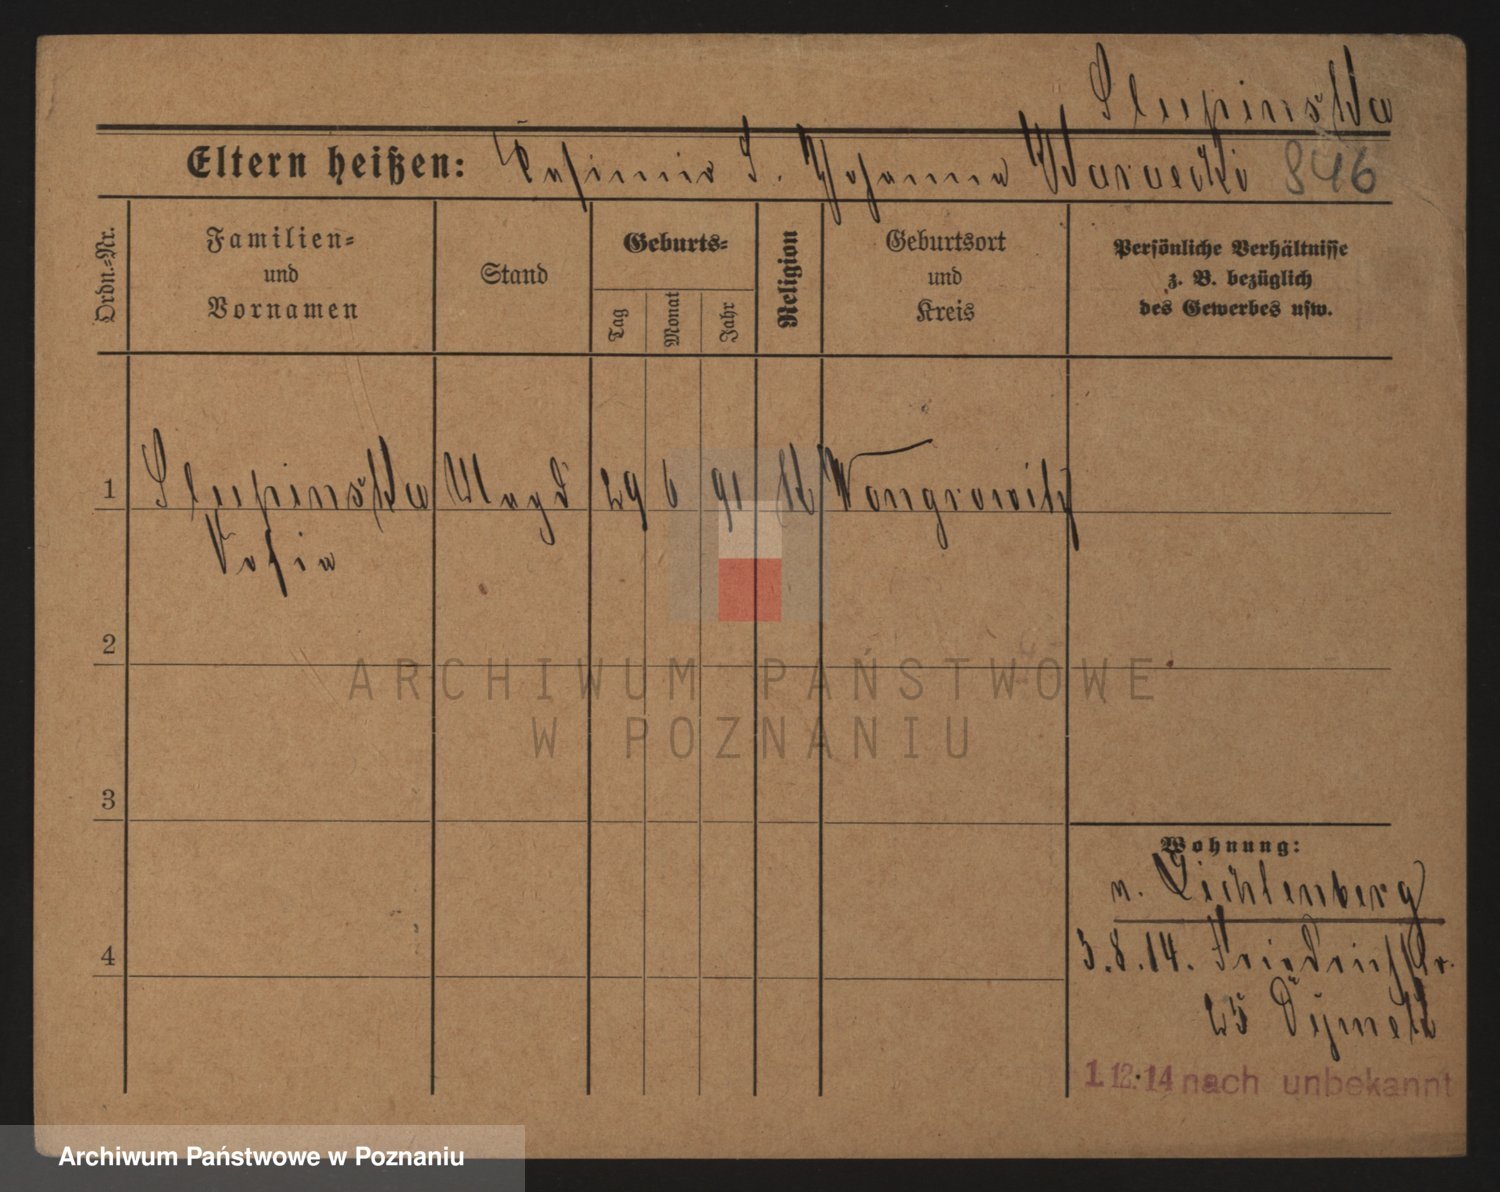 Slupinska
Eltern heißen: Kasimir S. Johanna Warnecki 846
Ordn.-Nr.
Familien-
und
Vornamen
Stand
Geburts-
Tag
Monat
Jahr
Religion
Geburtsort
und
Kreis
Persönliche Verhältnisse
z. B. bezüglich
des Gewerbes usw.
1 Slupinska Magd 29 6 91 K Wongrowitz
Sofia
2
3
4
Wohnung:
n. Lichtenberg
3.8.14. Friedrichstr.
25
1.12.14 nach unbekannt
ARCHIWUM PAŃSTWOWE
W POZNANIU
Archiwum Państwowe w Poznaniu